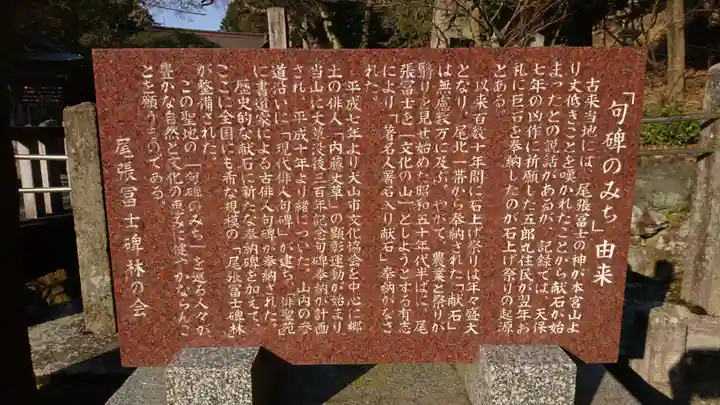 「句碑のみち」由来
古来当地には、尾張冨士の神が本宮山よ
り丈低きことを嘆かれたことから献石が始
まったとの説話があるが、記録では、天保
七年の凶作に祈願した五郎丸住民が翌年お
礼に巨石を奉納したのが石上げ祭りの起源
とある。
以来百数十年間に石上げ祭りは年々盛大
となり、尾北一帯から奉納された「献石」
は無慮数万に及ぶ。やがて、農業と祭りが
翳りを見せ始めた昭和五十年代半ばに、尾
張冨士を「文化の山」としようとする有志
により「著名人署名入り献石」奉納がなさ
れた。
平成七年より犬山市文化協会を中心に郷
土の俳人「内藤丈草」の顕彰運動が始まり
当山に丈草没後三百年記念句碑奉納が計画
され、平成十年より緒についた。山内の参
道沿いに「現代俳人句碑」が建ち、「俳聖苑」
に書道家による古俳人句碑が奉納された。
歴史的な献石に新たな奉納碑を加えて、
ここに全国にも希な規模の「尾張冨士碑林」
が整備された。
この聖地の「句碑のみち」を巡る人々が
豊かな自然と文化の恵みに健やかならんこ
とを願うものである。
尾張冨士碑林の会